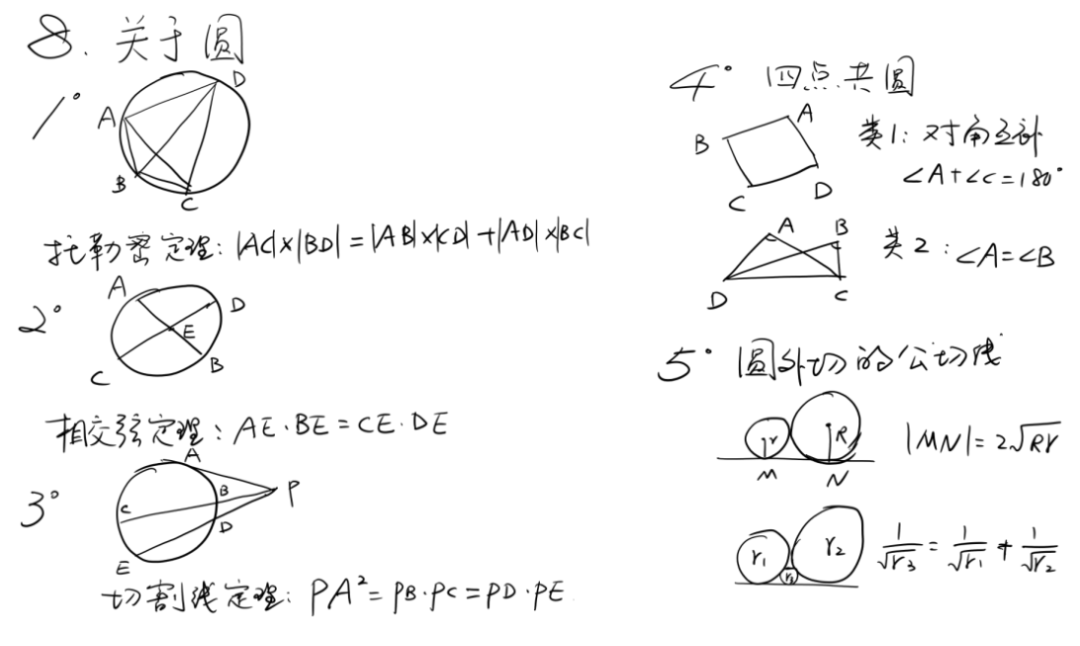 8. 关于圆
1°
A
D
B
C
托勒密定理: |AC|×|BD|=|AB|×|CD|+|AD|×|BC|
2°
A
D
E
C
B
相交弦定理: AE·BE=CE·DE
3°
A
B
P
C
D
E
切割线定理: PA²=PB·PC=PD·PE
4° 四点共圆
A
B
C
D
类1: 对角互补
∠A+∠C=180°
A
B
D
C
类2: ∠A=∠B
5° 圆外切的公切线
r
R
M
N
|MN|=2√Rr
r₁
r₂
r₃
1/√r₃=1/√r₁+1/√r₂